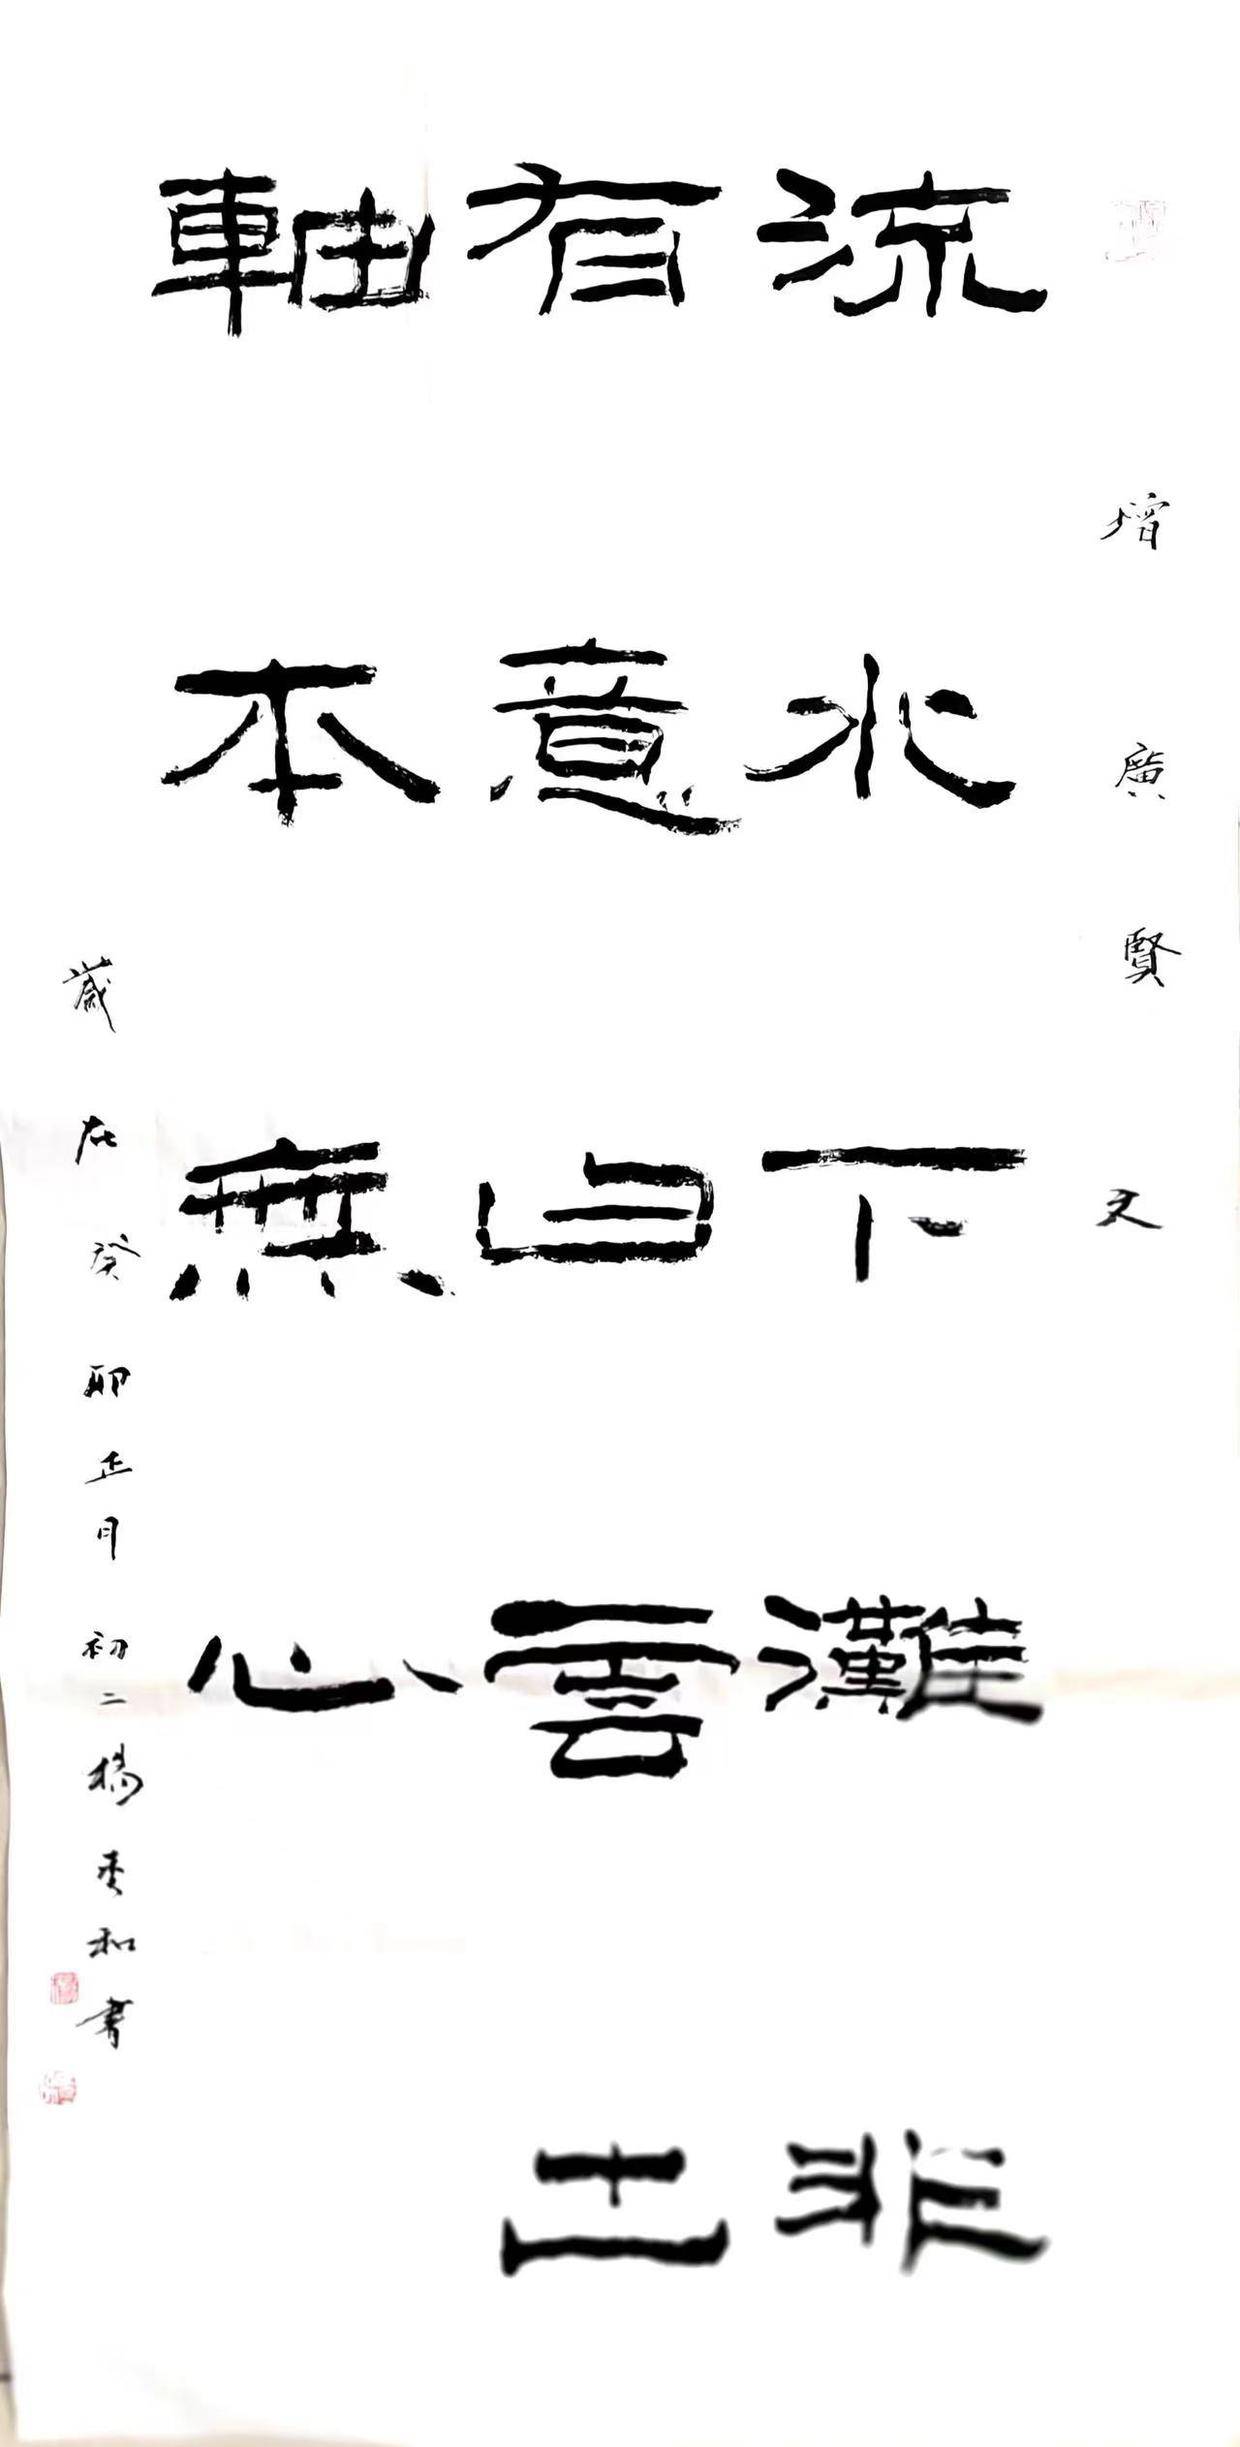 增廣賢文
流水下灘非
有意白雲出
軸本無心
歲在癸卯正月初二楊和書